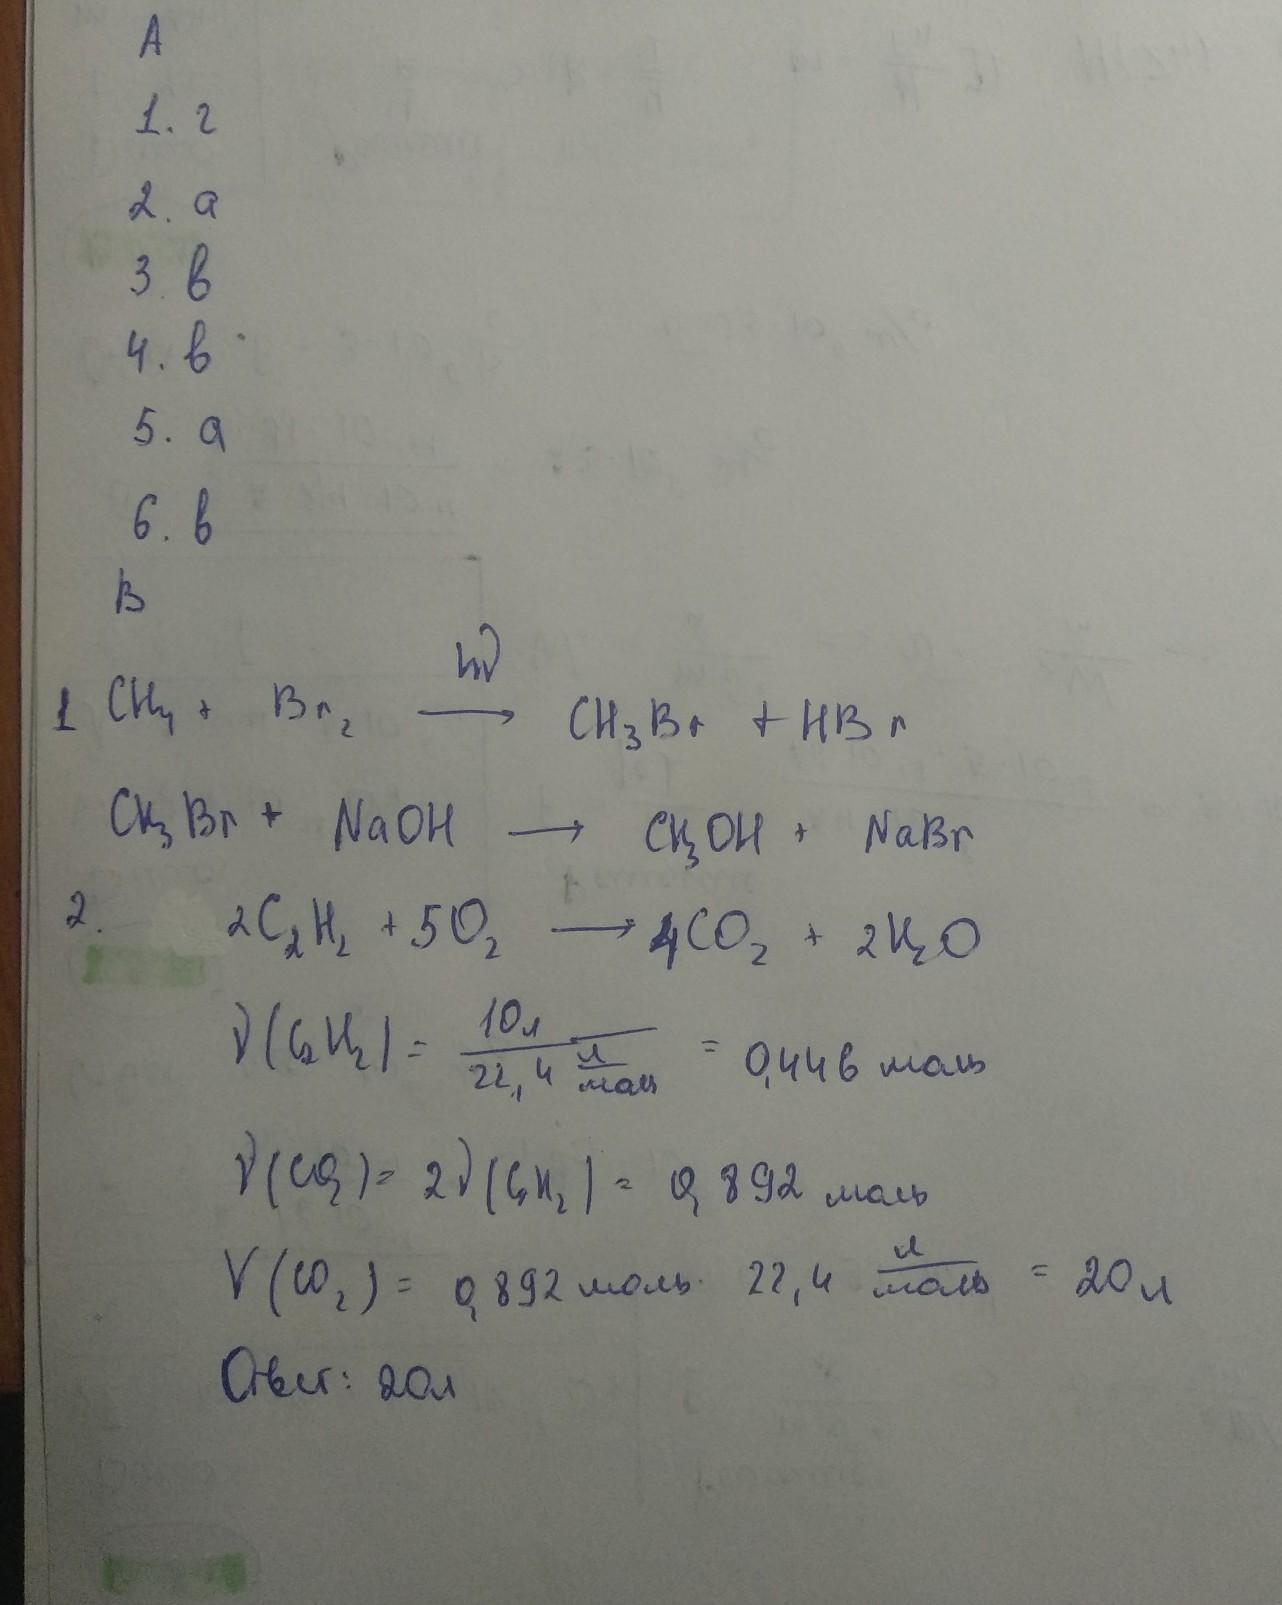 А
1. г
2. а
3. в
4. в
5. а
6. в
В
1 CH₄ + Br₂ hν ⟶ CH₃Br + HBr
CH₃Br + NaOH ⟶ CH₃OH + NaBr
2. 2C₂H₂ + 5O₂ ⟶ 4CO₂ + 2H₂O
ν(C₂H₂) = 10л / 22,4 л/моль = 0,446 моль
ν(CO₂) = 2ν(C₂H₂) = 0,892 моль
V(CO₂) = 0,892 моль · 22,4 л/моль = 20 л
Ответ: 20л